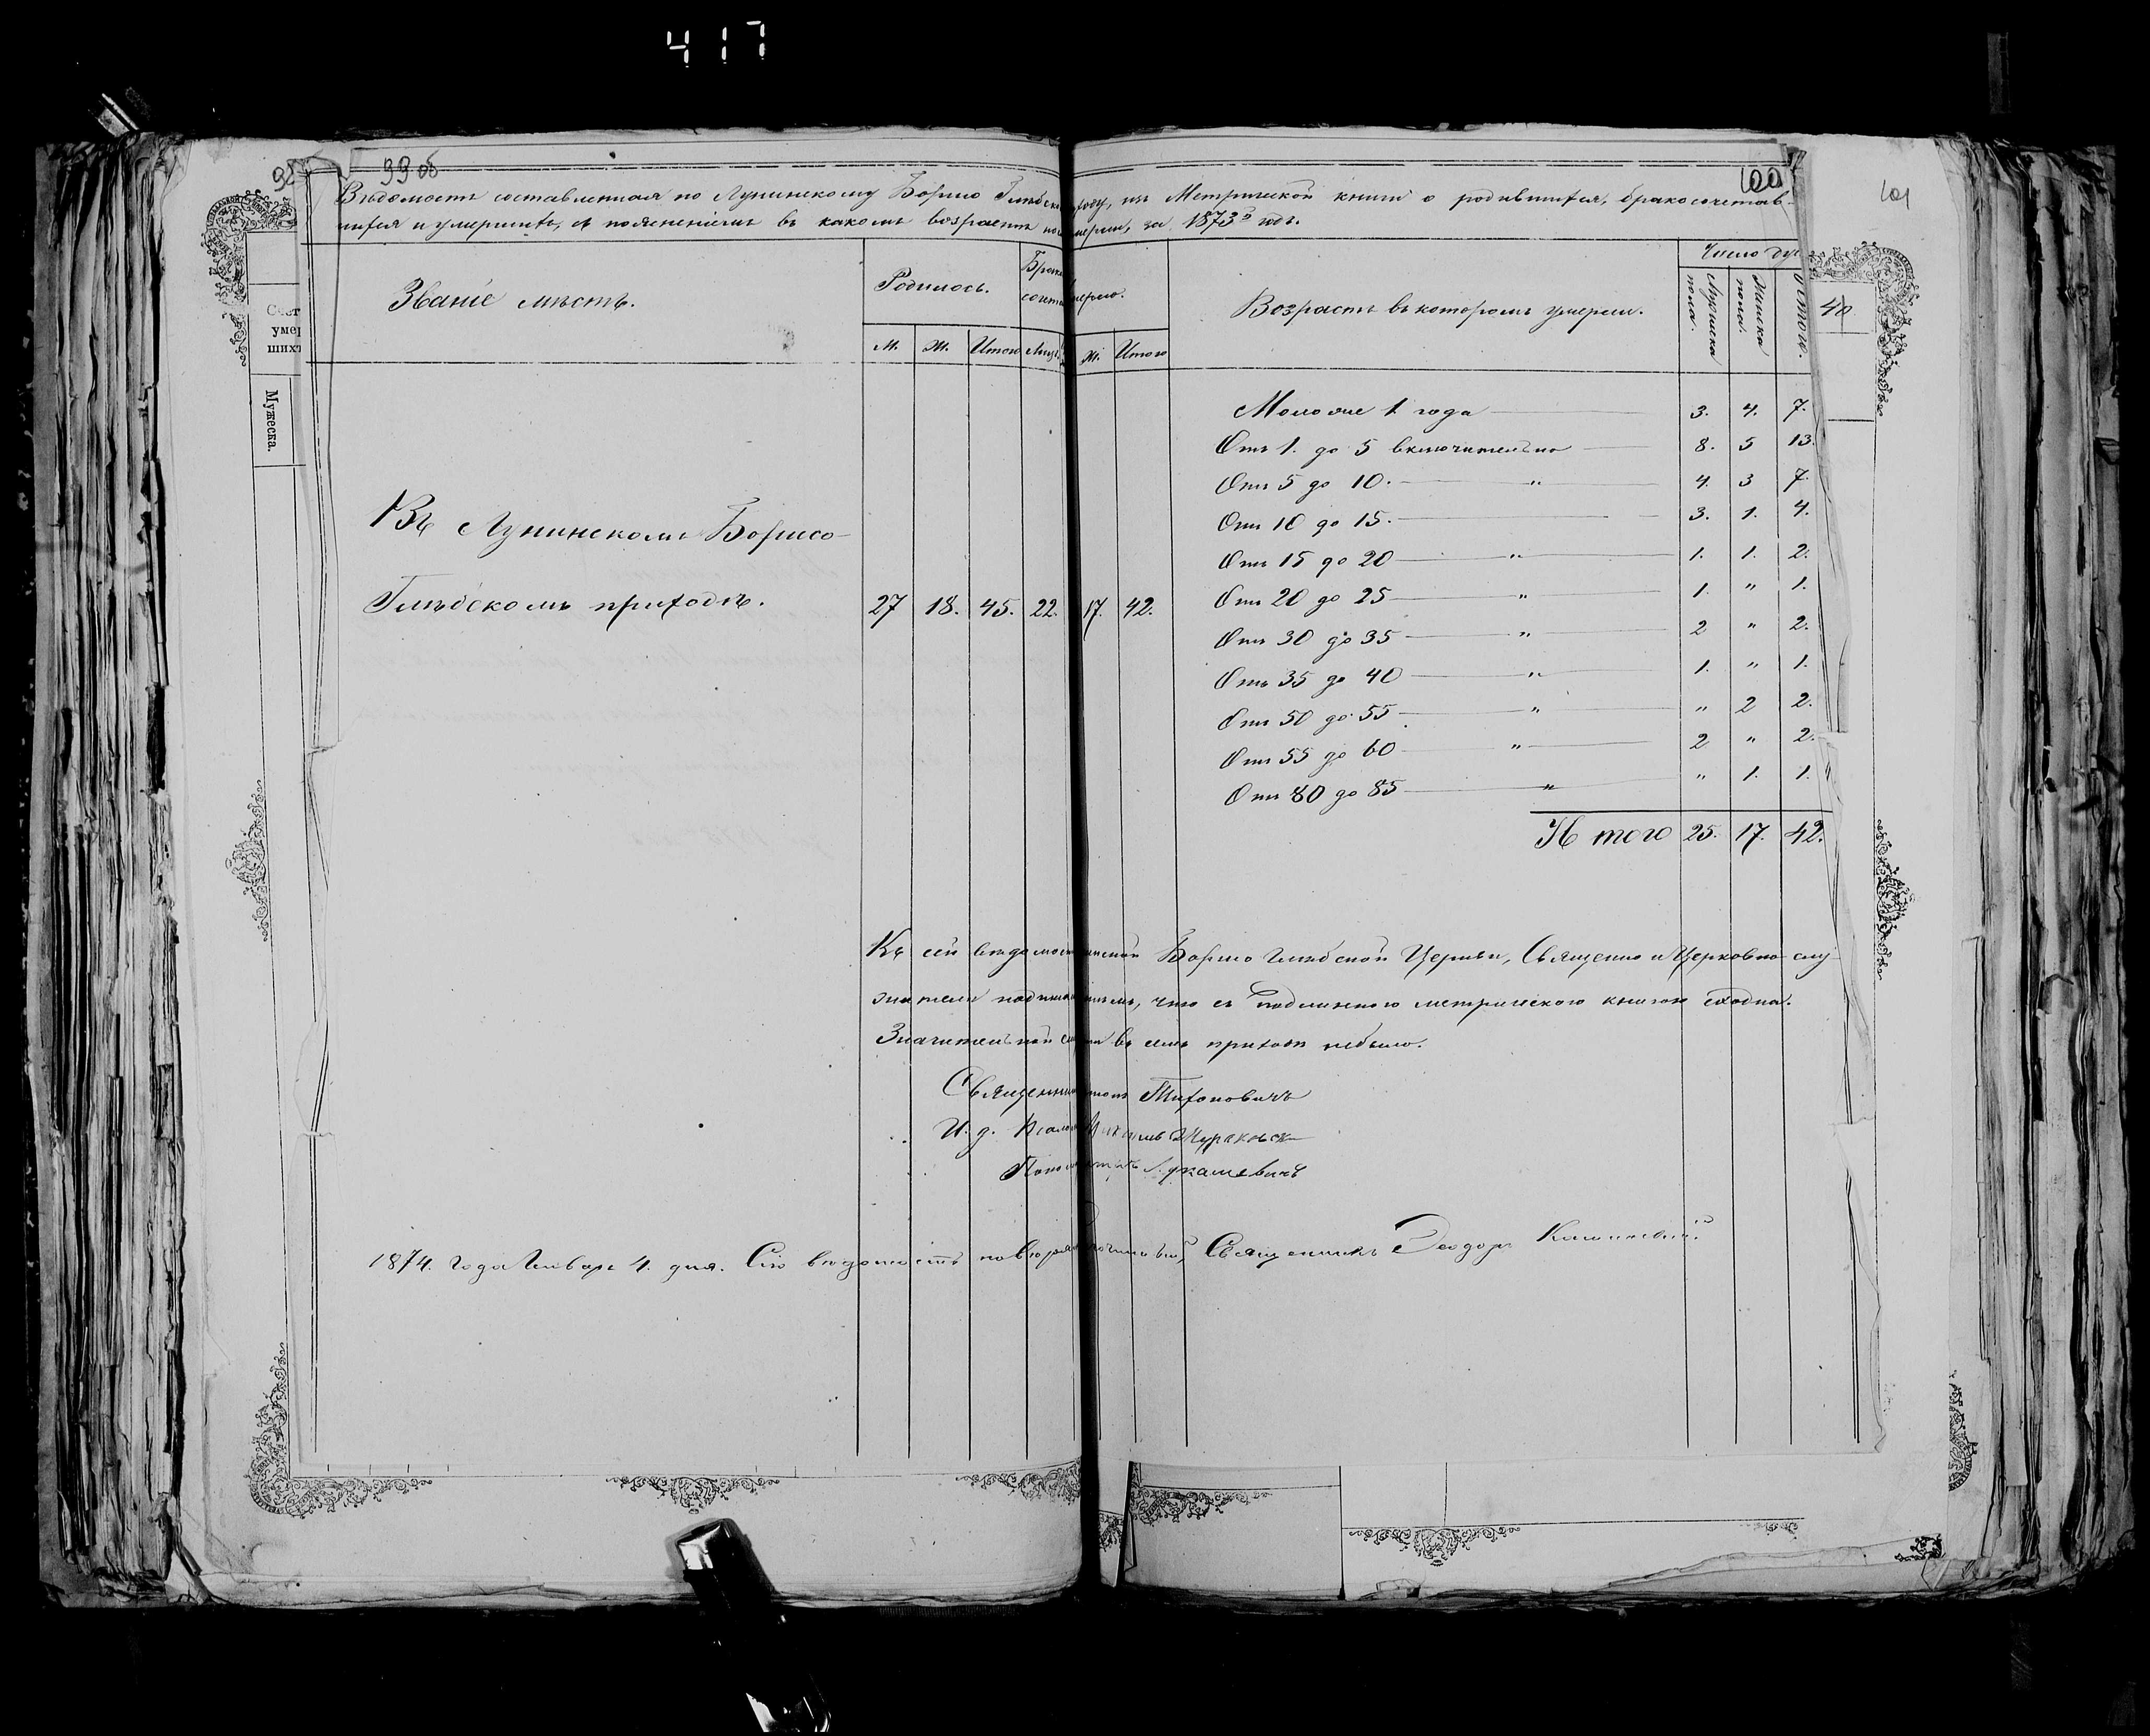 417
99 об
100
101
Вѣдомость составленная по Лунинскому Борисо Глѣбско
ходу, изъ Метрической книги о родившихся, бракосочетав-
шихся и умершихъ, съ поясненіемъ въ какомъ возрастѣ по
мерли, за 1873й годъ.
Званіе мѣстъ.
Родилось.
Брако
сочета
мерло.
М. Ж. Итого Лицъ
Ж. Итого
Возрастъ въ которомъ умерли.
Число ду
Мужеска пола.
Женска пола.
Итого.
Счет
умер
шихъ
Мужеска.
40
Въ Лунинскомъ Борисо-
Глѣбскомъ приходѣ.
27 18. 45. 22. 17. 42.
Моложе 1 года 3. 4. 7.
Отъ 1. до 5 включительно 8. 5 13.
Отъ 5 до 10. " 4. 3 7.
Отъ 10 до 15. 3. 1. 4.
Отъ 15 до 20 " 1. 1. 2.
Отъ 20 до 25 " 1. " 1.
Отъ 30 до 35 " 2 " 2.
Отъ 35 до 40 " 1. " 1.
Отъ 50 до 55 " " 2 2.
Отъ 55 до 60 " 2 " 2.
Отъ 80 до 85 " " 1. 1.
Итого 25. 17. 42.
Къ сей вѣдомост нской Борисо Глѣбской Церкви, Священно и Церковно слу-
жители подписа емъ, что съ подлинною метрическою книгою сходна.
Значительной см ти въ семъ приходѣ небыло.
Священни Тихоновичъ
И. д. Псалом
Поном Лукашевичъ
1874. года Января 4. дня. Сію вѣдомость повѣрял Благочинный, Священникъ Ѳеодоръ